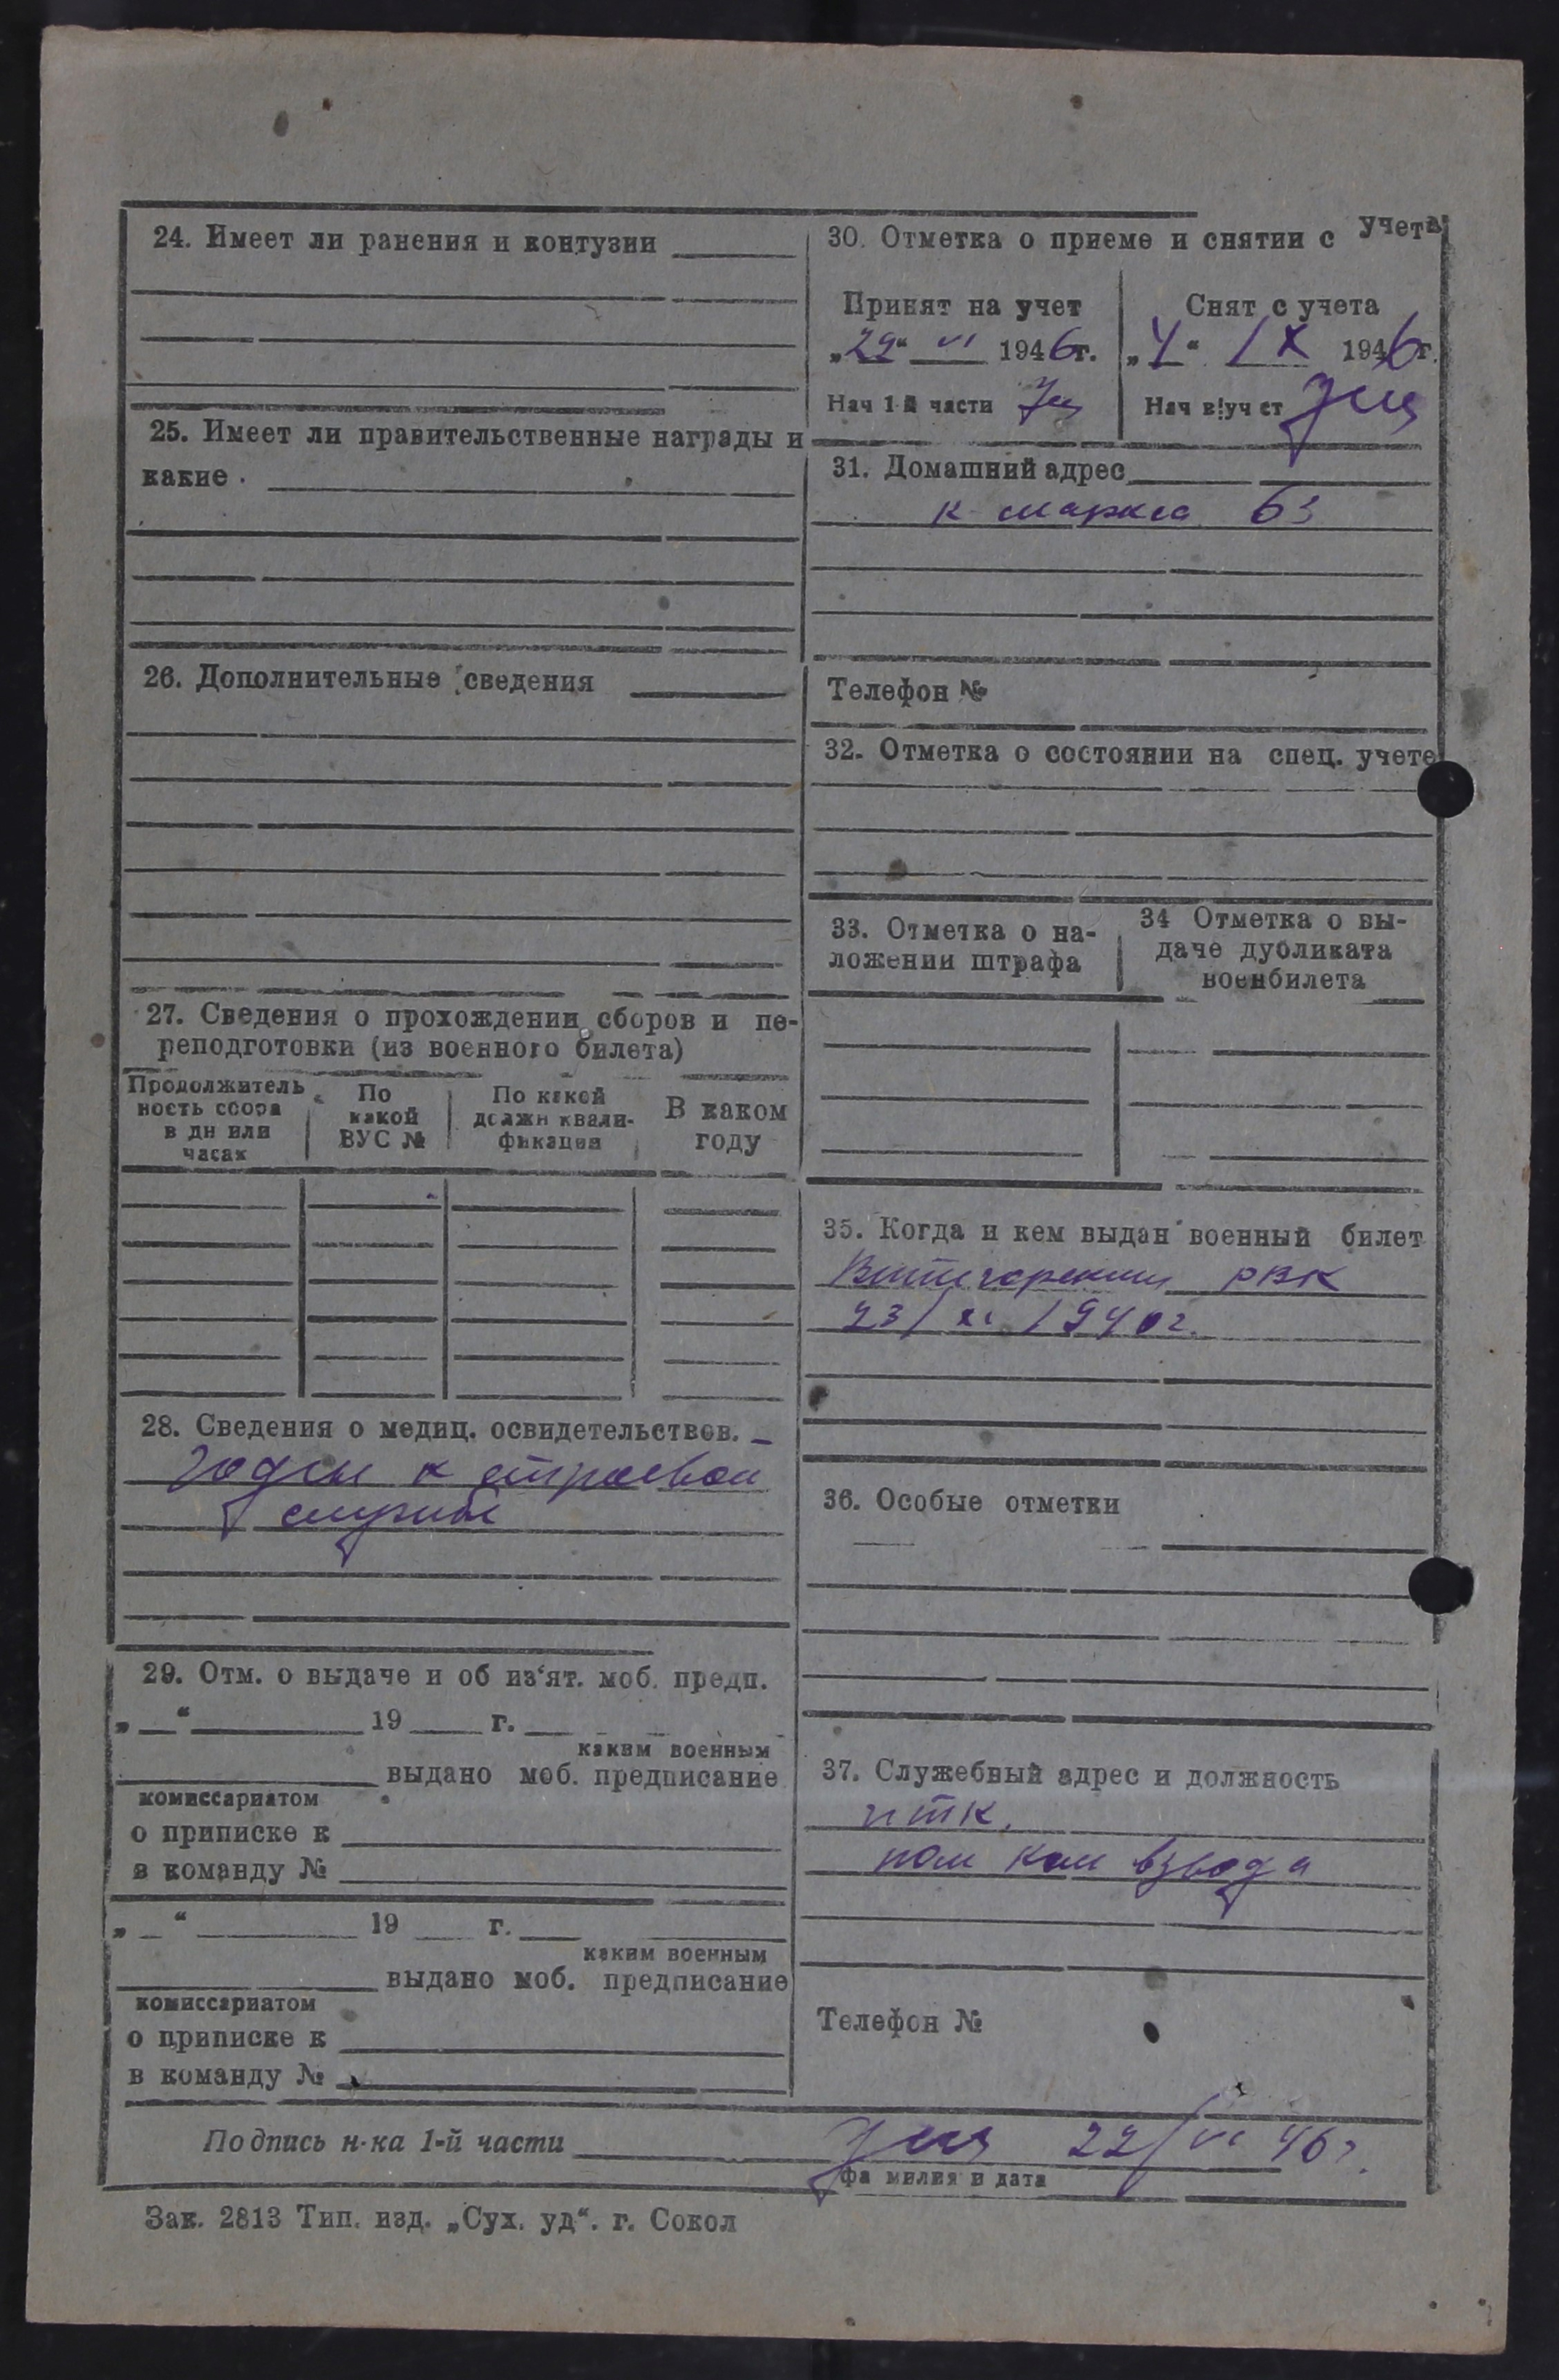 24. Имеет ли ранения и контузии
25. Имеет ли правительственные награды и
какие
26. Дополнительные сведения
27. Сведения о прохождении сборов и пе-
реподготовки (из военного билета)
Продолжитель
ность сбора
в дн или
часах
По
какой
ВУС №
По какой
должн квали-
фикации
В каком
году
28. Сведения о медиц. освидетельствов.
Годен к строевой
службе
29. Отм. о выдаче и об из'ят. моб. предп.
„ “ 19 г.
каким военным
выдано моб. предписание
комиссариатом
о приписке к
в команду №
„ “ 19 г.
каким военным
выдано моб. предписание
комиссариатом
о приписке к
в команду №
30. Отметка о приеме и снятии с учета
Принят на учет
„29“ VI 1946г.
Нач 1-й части
Снят с учета
„4“ IX 1946г.
Нач в/уч ст
31. Домашний адрес
К маркса 63
Телефон №
32. Отметка о состоянии на спец. учете
33. Отметка о на-
ложении штрафа
34 Отметка о вы-
даче дубликата
военбилета
35. Когда и кем выдан военный билет
Вытегорским РВК
23/XI 1940г.
36. Особые отметки
37. Служебный адрес и должность
ИТК.
пом ком взвода
Телефон №
Подпись н-ка 1-й части
22/VI 46г.
фамилия и дата
Зак. 2813 Тип. изд. „Сух. уд“. г. Сокол